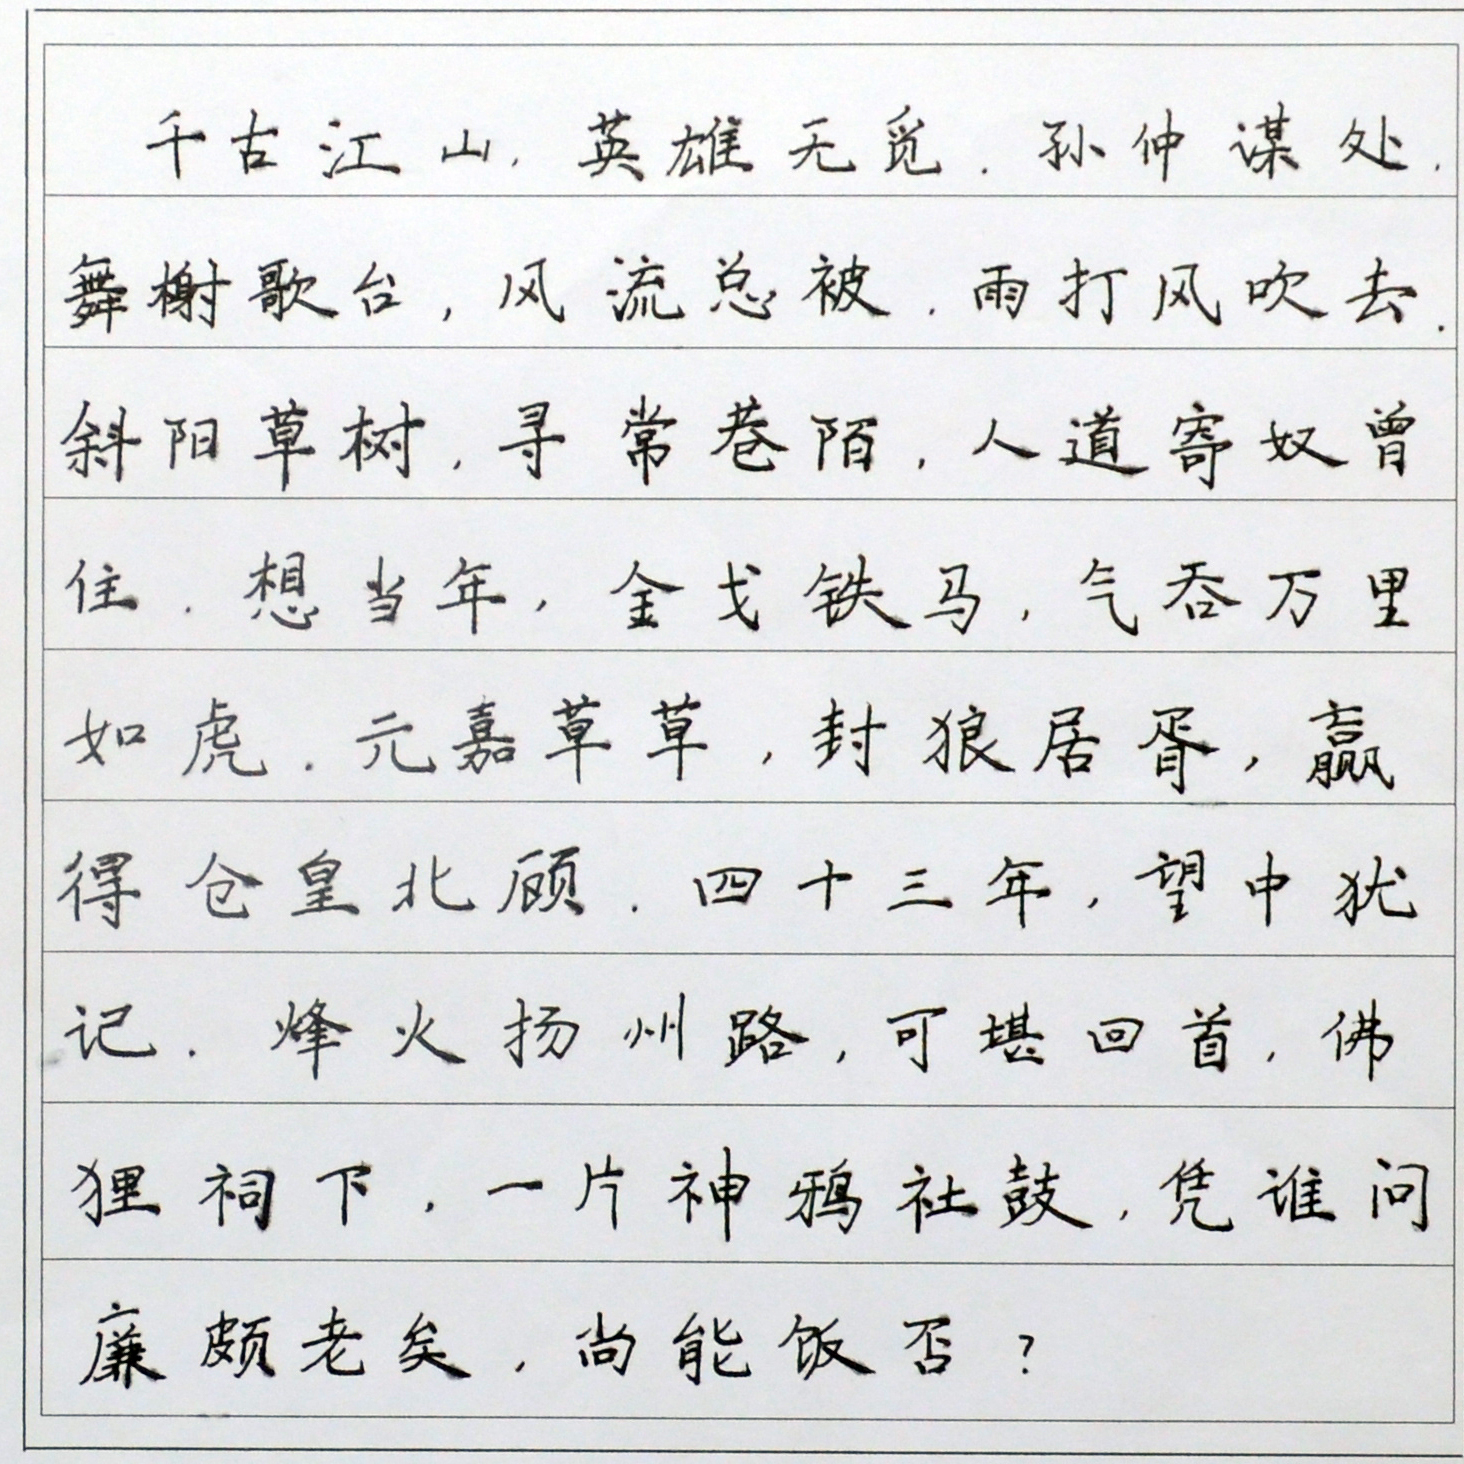 千古江山,英雄无觅.孙仲谋处.
舞榭歌台,风流总被.雨打风吹去.
斜阳草树,寻常巷陌,人道寄奴曾
住.想当年,金戈铁马,气吞万里
如虎.元嘉草草,封狼居胥,赢
得仓皇北顾.四十三年,望中犹
记.烽火扬州路,可堪回首,佛
狸祠下,一片神鸦社鼓,凭谁问
廉颇老矣,尚能饭否?